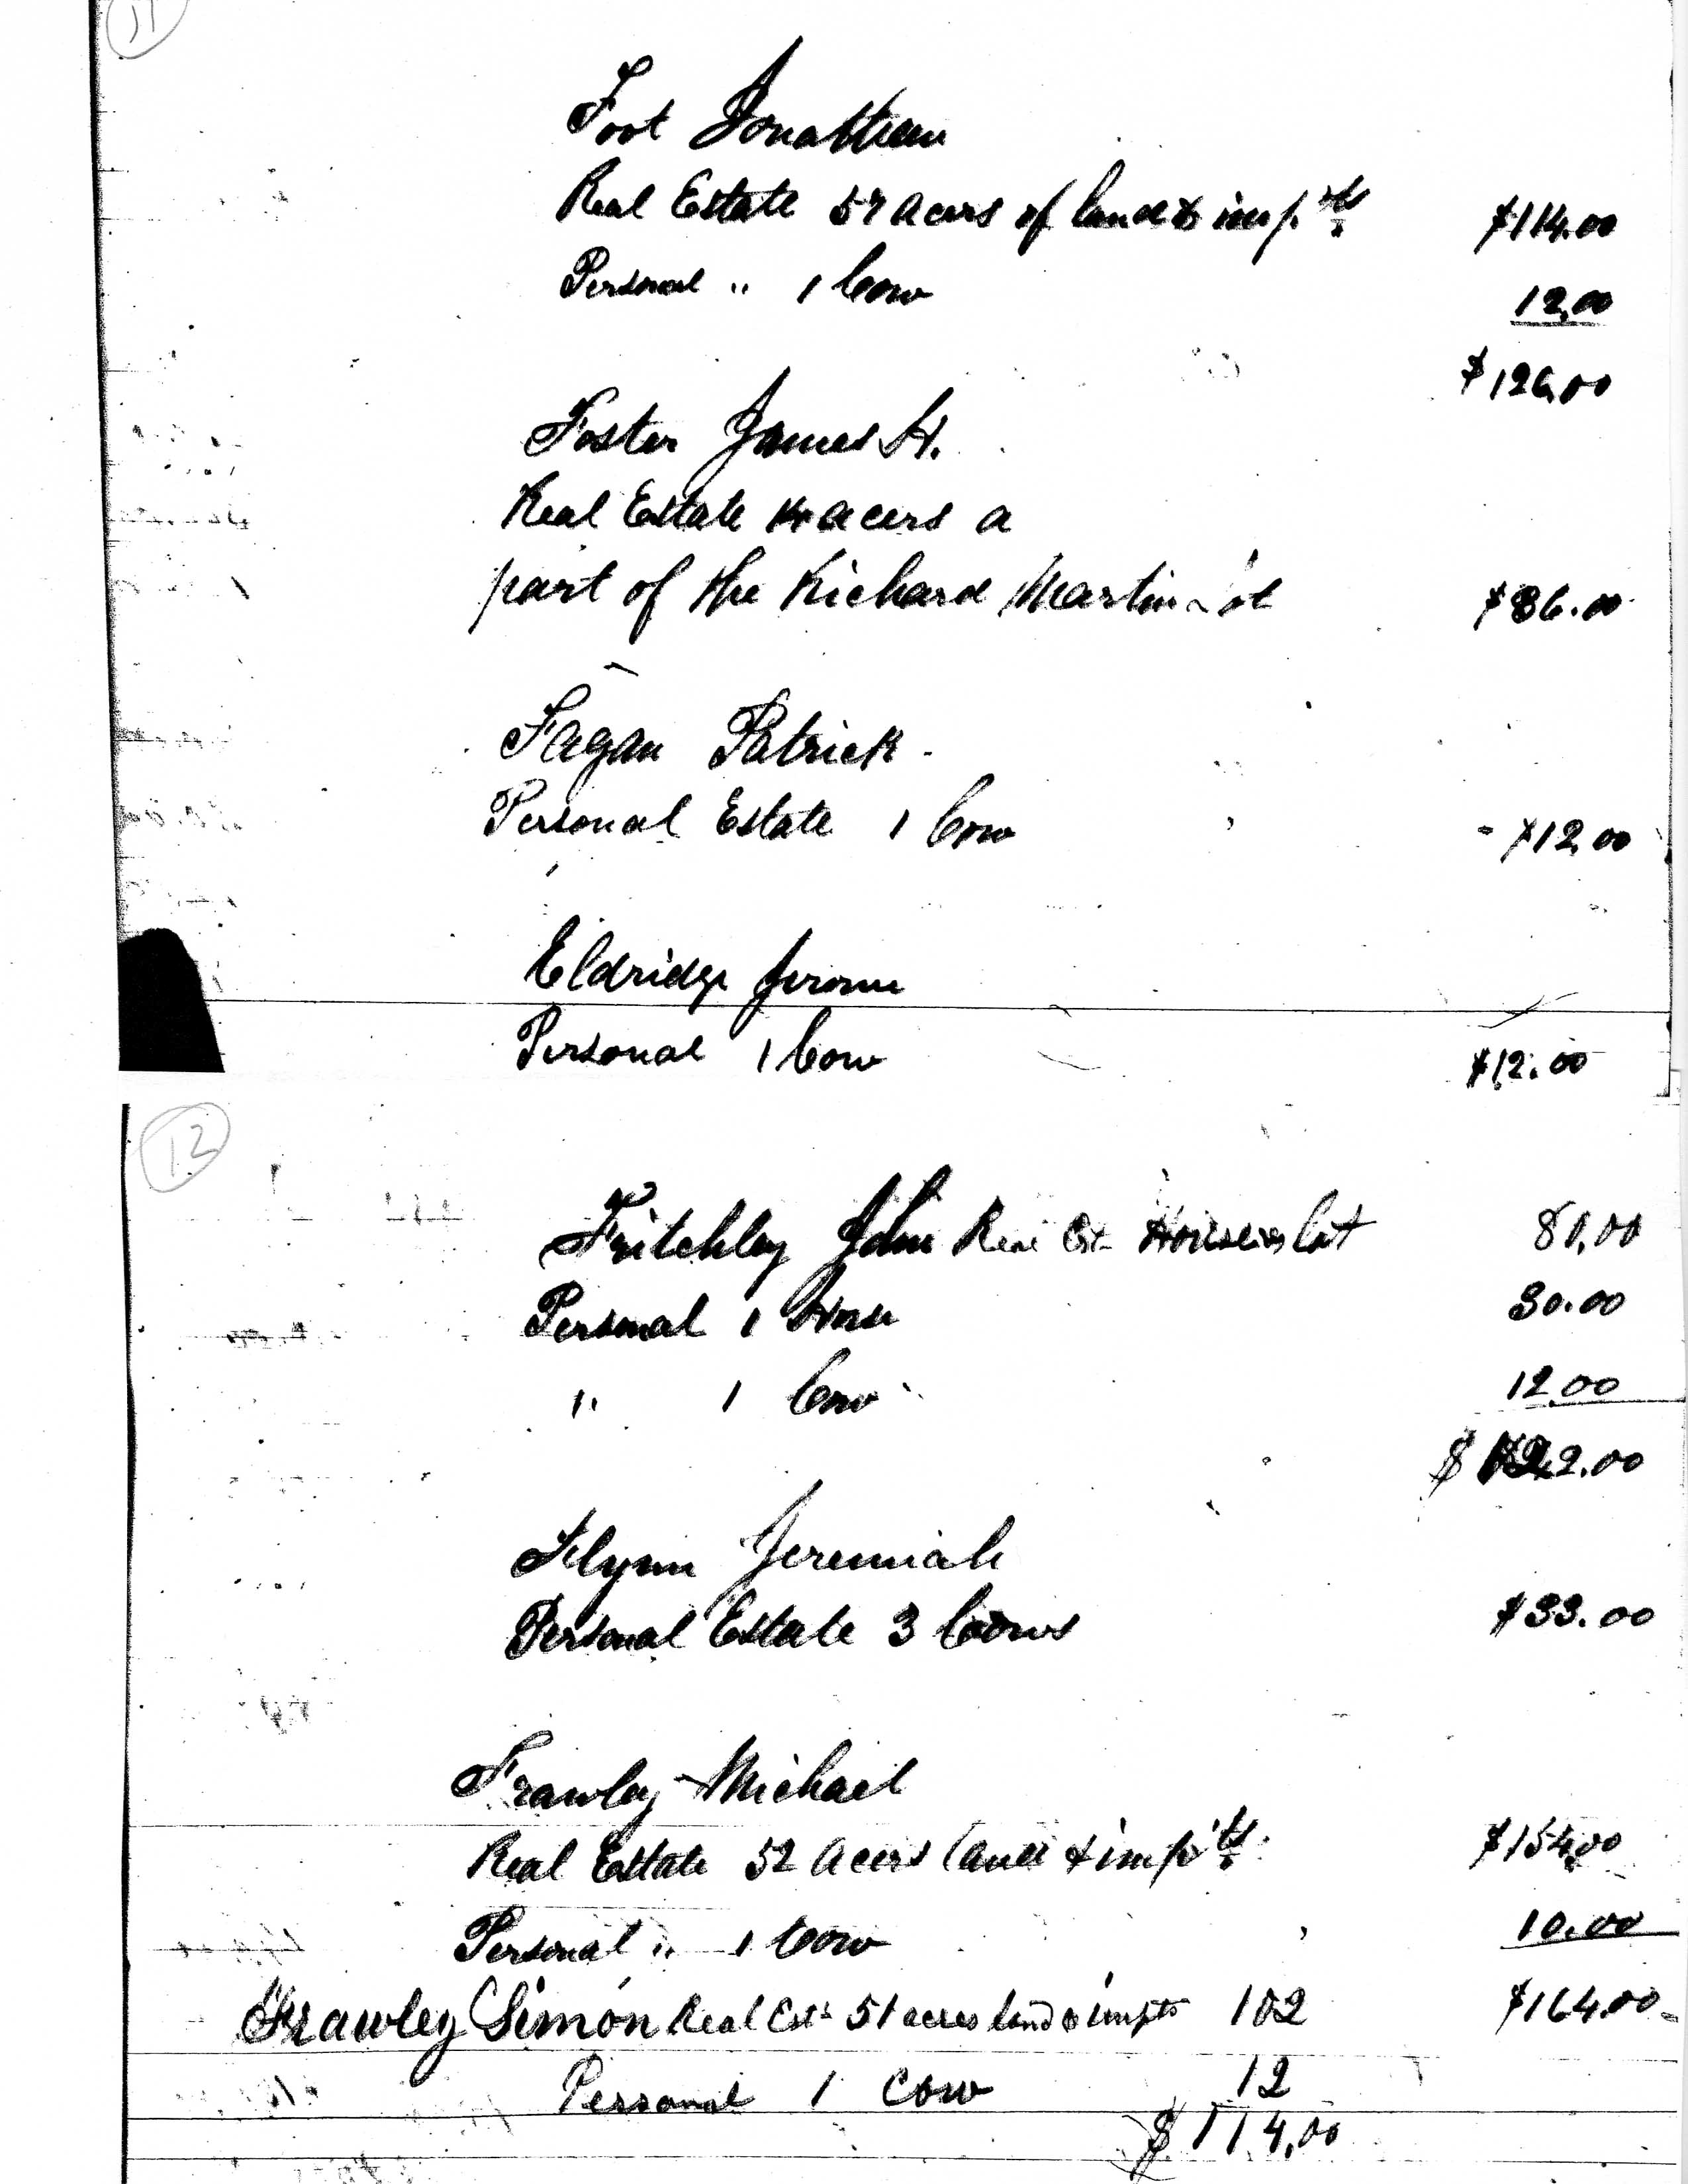 11
Foot Jonathan
Real Estate 57 acers of land & imp.ts $114.00
Personal " 1 Cow 12.00
$126.00
Foster James H.
Real Estate 14 acers a
part of the Richard Martin lot $86.00
Fagan Patrick
Personal Estate 1 Cow $12.00
Eldridge Jerome
Personal 1 Cow $12.00
12
Fritchley John Real Est House & lot 80.00
Personal 1 Horse 30.00
" 1 Cow 12.00
$122.00
Flynn Jeremiah
Personal Estate 3 Cows $33.00
Frawley Michael
Real Estate 52 acers land & imp'ts $154.00
Personal " 1 Cow 10.00
$164.00
Frawley Simon Real Est 51 acres land & impts 102
Personal 1 Cow 12
$114.00